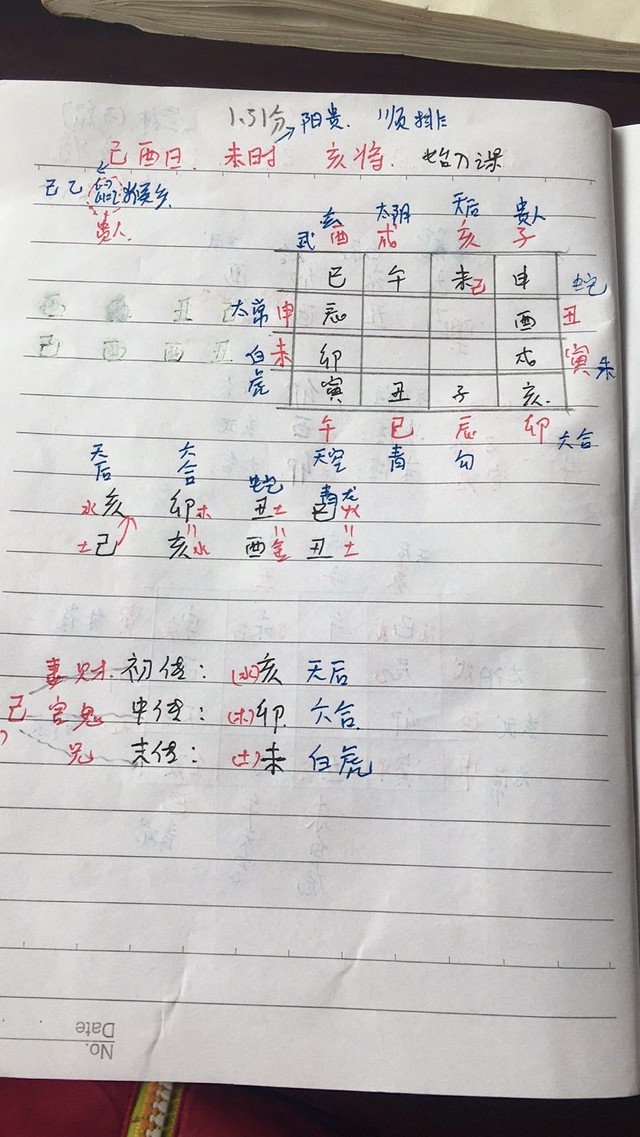 1.51分 阳贵. 顺排
己酉日. 未时 亥将. 始入课
己乙鼠猴乡
贵人
玄武 太阴 天后 贵人
酉 戌 亥 子
巳 午 未己 申 蛇
太常 申 辰 酉 丑
白虎 未 卯 戌 寅 朱
寅 丑 子 亥
午 巳 辰 卯 六合
天空 青 勾
天后 六合 蛇 青龙
水亥 卯木 丑土 巳火
土己 亥水 酉金 丑土
妻财. 初传: (水)亥 天后
己 官鬼 中传: (木)卯 六合
兄 末传: (土)未 白虎
No.
Date